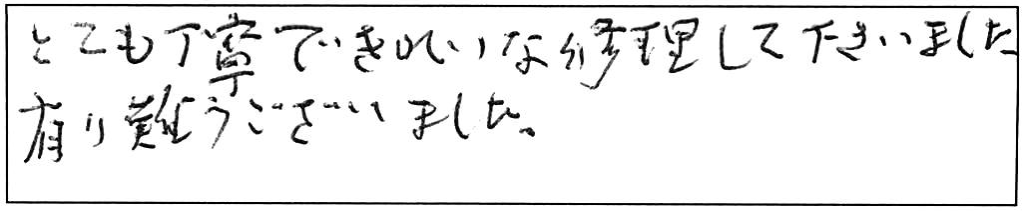 とても丁寧できれいな修理して下さいました
有り難うございました。